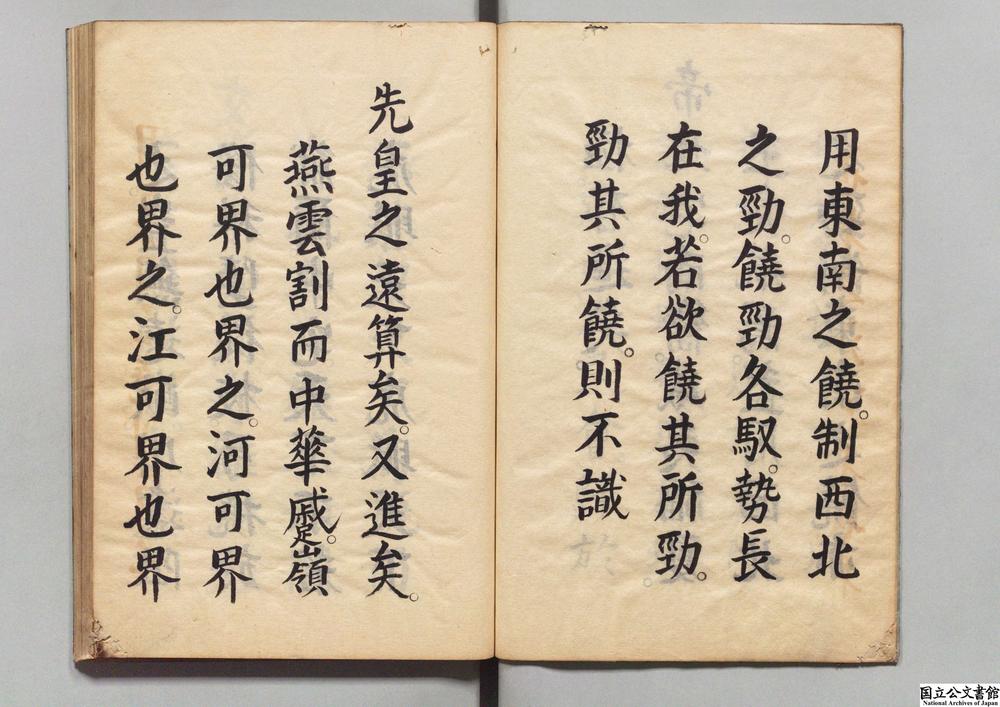 用東南之饒。制西北
之勁。饒勁各馭。勢長
在我。若欲饒其所勁。
勁其所饒。則不識
先皇之遠算矣。又進矣。
燕雲割而中華蹙。嶺
可界也界之。河可界
也界之。江可界也界
国立公文書館
National Archives of Japan